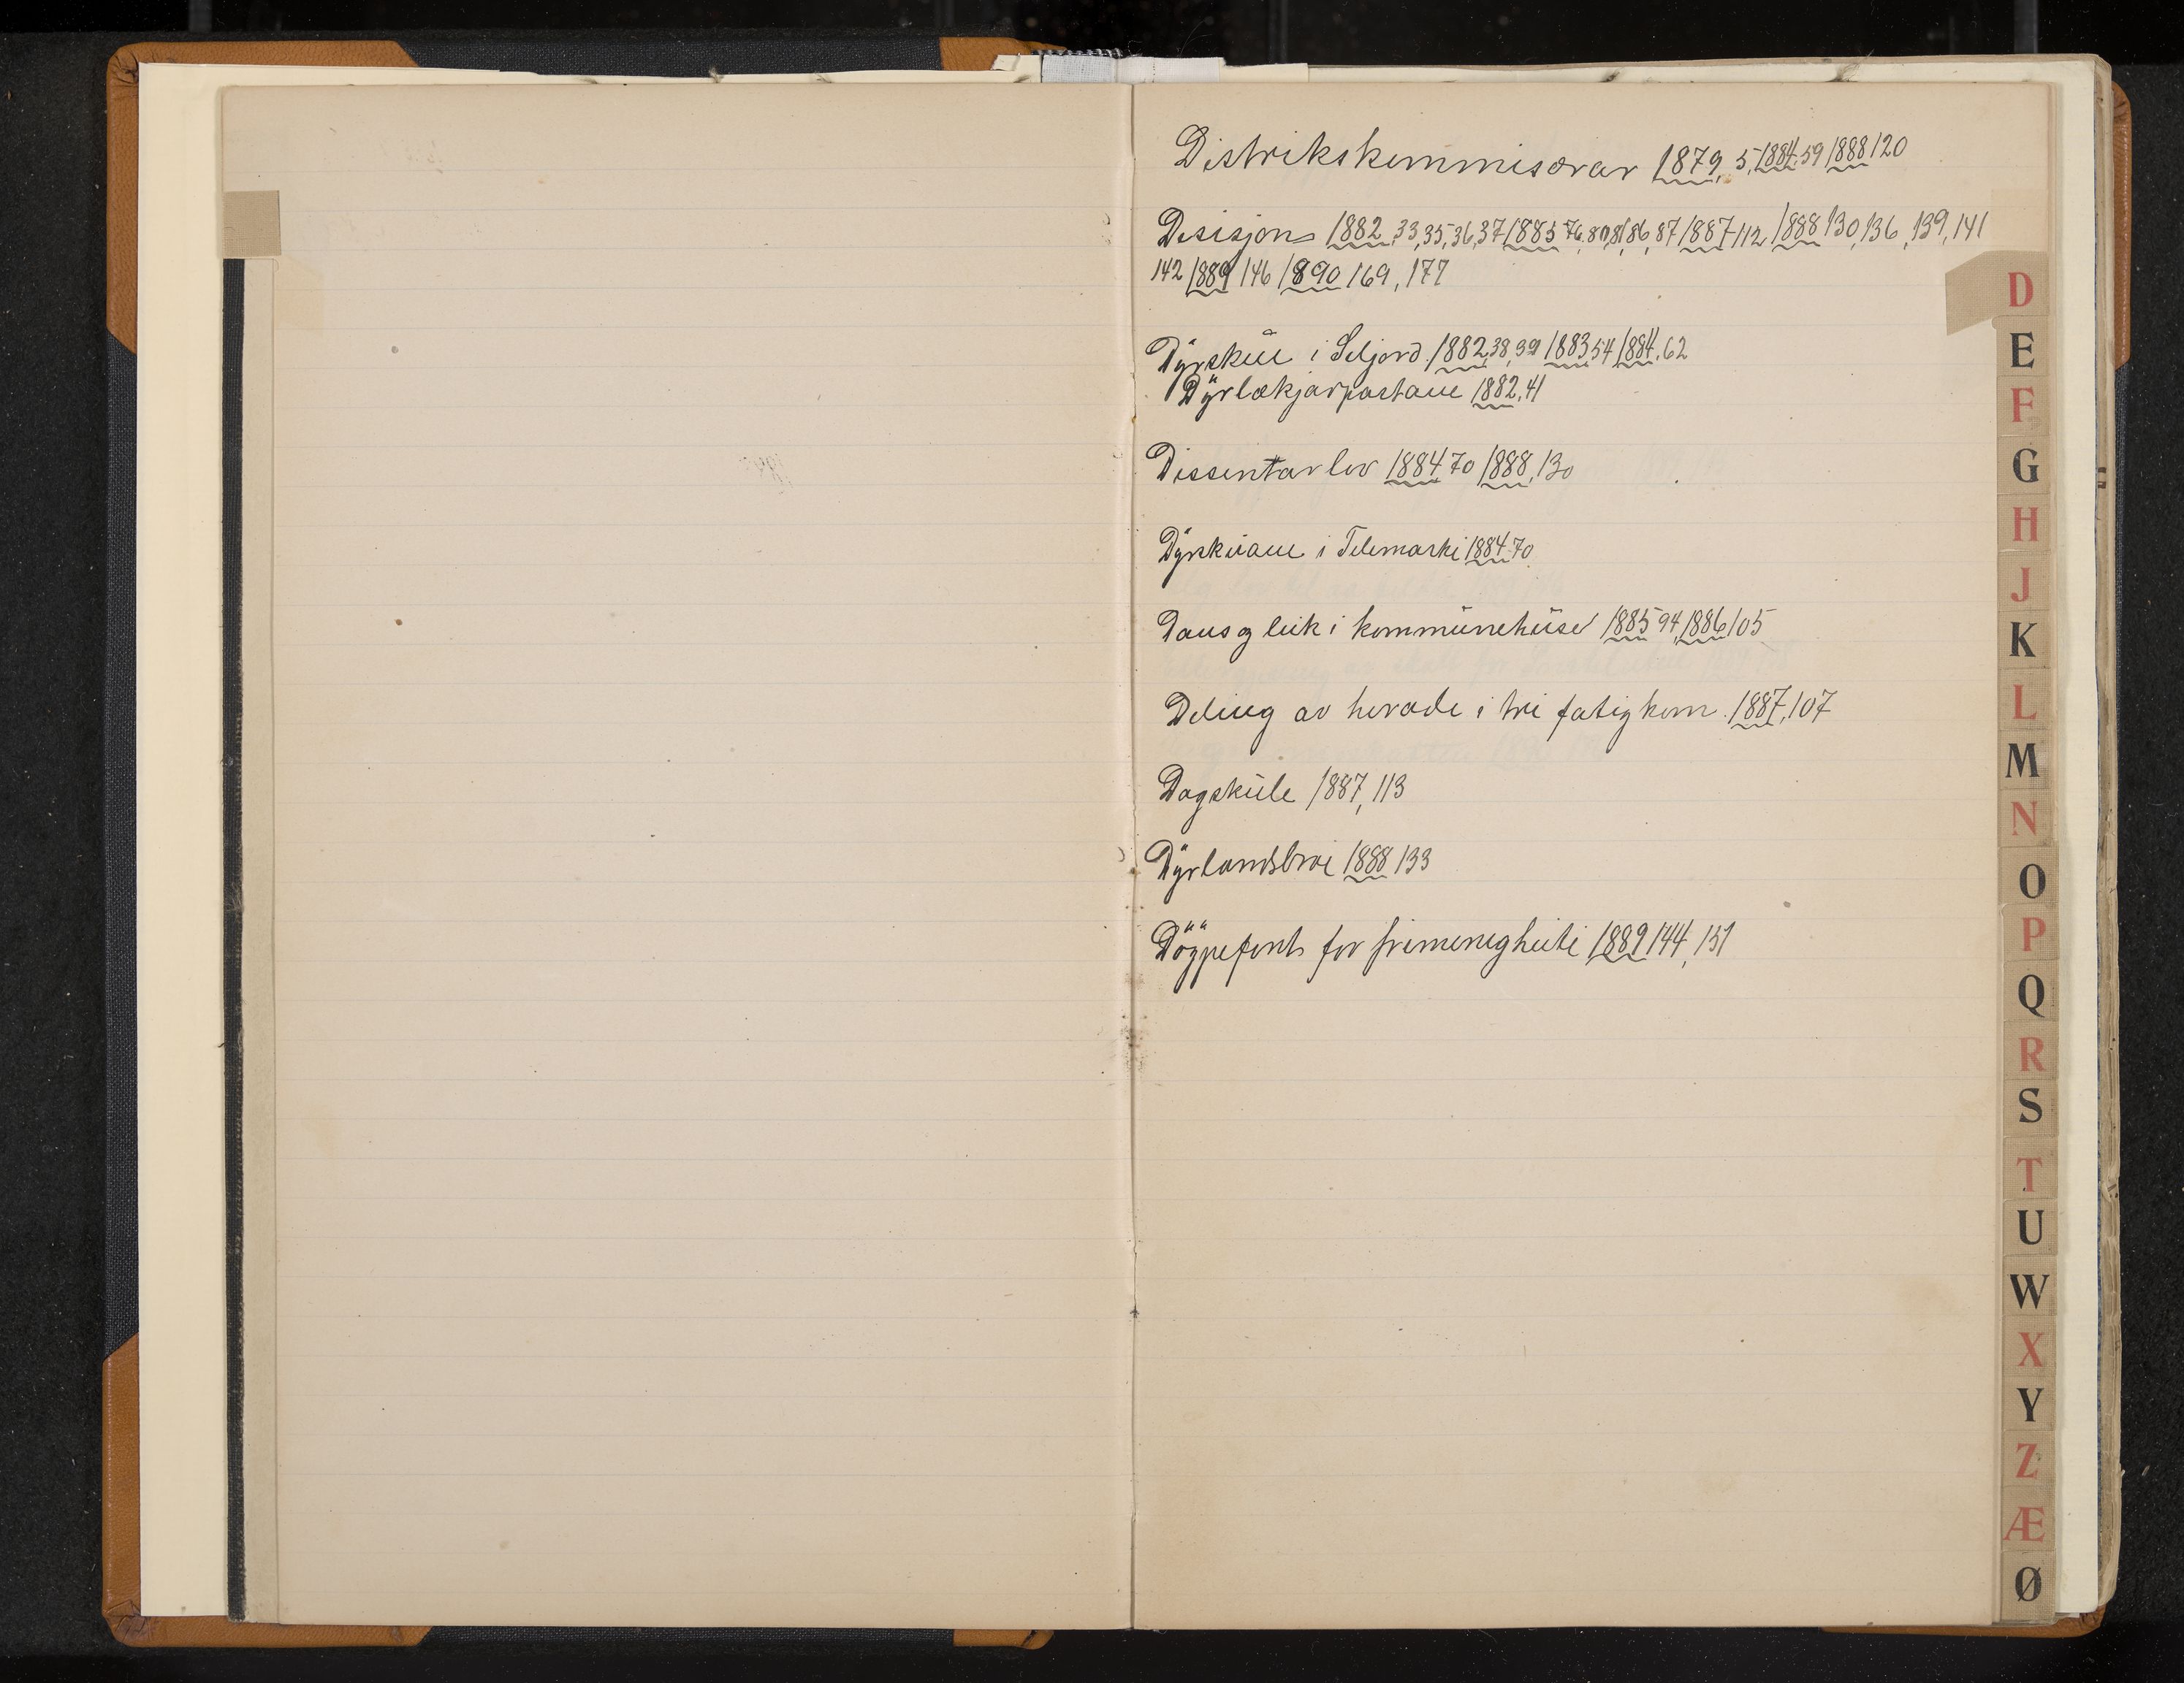 Distrikskommisærar 1879, 5, 1884, 59 1888 120
Desisjon 1882, 33, 35, 36, 37 1885 76, 80, 81, 86, 87 1887 112 1888 130, 136, 139, 141
142 1889 146 1890 169, 177
Dyrskue i Seljord 1882, 38, 39 1883 54 1884, 62
Dyrlækjarpostane 1882, 41
Dissentarlov 1884, 70 1888, 130
Dyrskuane i Telemarki 1884 70
Dans og leik i kommunehuse 1885 94, 1886 105
Deling av herade i tri fatigkom. 1887, 107
Dagskule 1887, 113
Dyrlandsbroi 1888 133
for frimenigheiti 1889 144, 151
D
E
F
G
H
J
K
L
M
N
O
P
Q
R
S
T
U
W
X
Y
Z
Æ
Ø